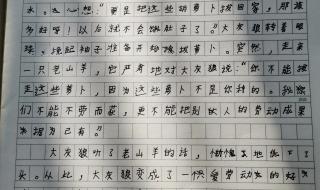 水。心想:"要是把这些胡萝卜拔回家,那该
多好呀!以后就不会饿肚子了。"大灰狼转着眼
珠,挽起袖子准备动手拔萝卜。突然,走来
一只老山羊,它严肃地对大灰狼说:"你不能拔
走这些萝卜,因为这些萝卜不是你种的。我
们不能不劳而获,更不能把别人的劳动成果
占为己有。"
大灰狼听了老山羊的话,惭愧地低下了
头。从此,大灰狼变成了一只爱劳动的好